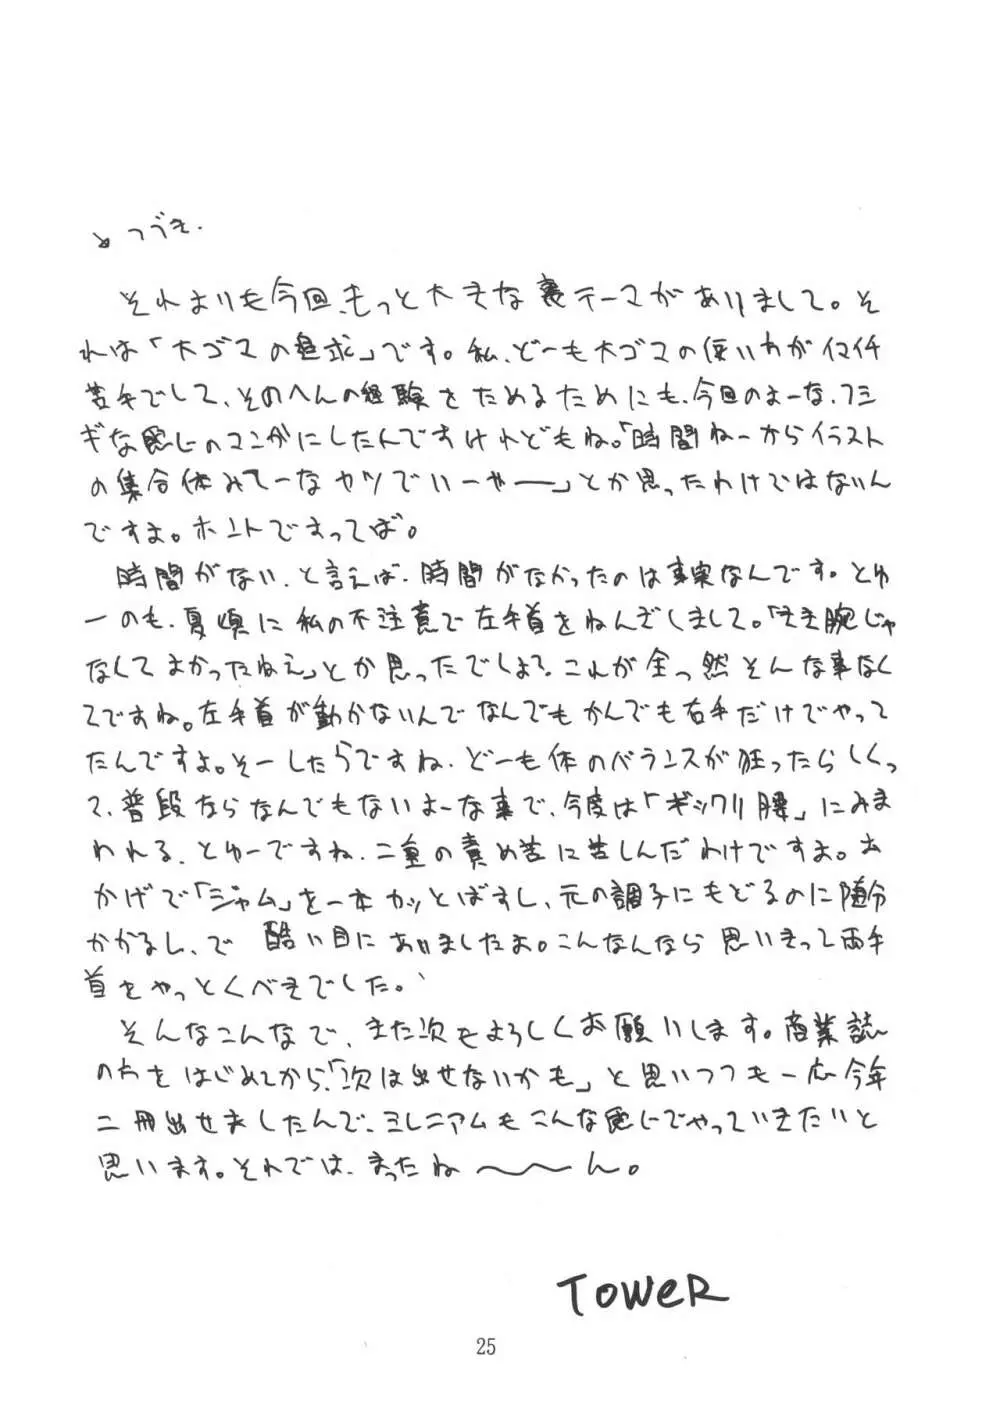 つづき.
それよりも今回、もっと大きな裏テーマがありまして。そ
れは「大ゴマの追求」です。私、どーも大ゴマの使い方がイマイチ
苦手でして、そのへんの経験をためるためにも、今回のよーな、フシ
ギな感じのマンガにしたんですけれどもね。「時間ねーからイラスト
の集合体みてーなヤツでいーやー」とか思ったわけではないん
ですよ。ホントですってば。
時間がない、と言えば、時間がなかったのは事実なんです。とゆ
ーのも、夏頃に私の不注意で左手首をねんざしまして。「きき腕じゃ
なくてよかったねえ」とか思ったでしょ?これが全っ然そんな事なく
てですね。左手首が動かないんでなんでもかんでも右手だけでやって
たんですよ。そーしたらですね、どーも体のバランスが狂ったらしくっ
て、普段ならなんでもないよーな事で、今度は「ギックリ腰」にみま
われる、とゆーですね、二重の責め苦に苦しんだわけですよ。お
かげで「ジャム」を一本カッとばすし、元の調子にもどるのに随分
かかるし、で 酷い目にありましたよ。こんなんなら思いきって両手
首をやっとくべきでした。
そんなこんなで、また次もよろしくお願いします。商業誌
の方をはじめてから、「次は出せないかも」と思いつつも一応今年
二冊出せましたんで、ミレニアムもこんな感じでやっていきたいと
思います。それでは、まったね〜〜ん。
TOWER
25